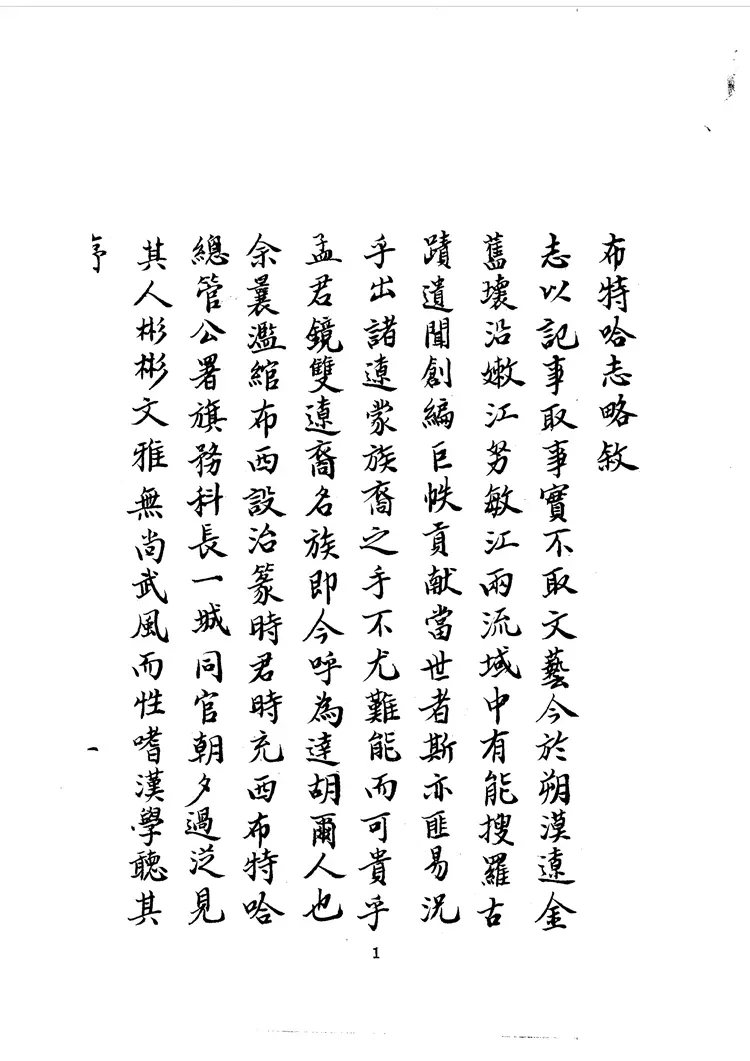 布特哈志略敘
志以記事取事實不取文藝今於朔漠遼金
舊壤沿嫩江努敏江兩流域中有能搜羅古
蹟遺聞創編巨帙貢献當世者斯亦匪易況
乎出諸遼蒙族裔之手不尤難能而可貴乎
孟君鏡雙遼裔名族即今呼為達胡爾人也
余曩濫綰布西設治篆時君時充西布特哈
總管公署旗務科長一城同官朝夕過泛見
其人彬彬文雅無尚武風而性嗜漢學聽其
序
一
1